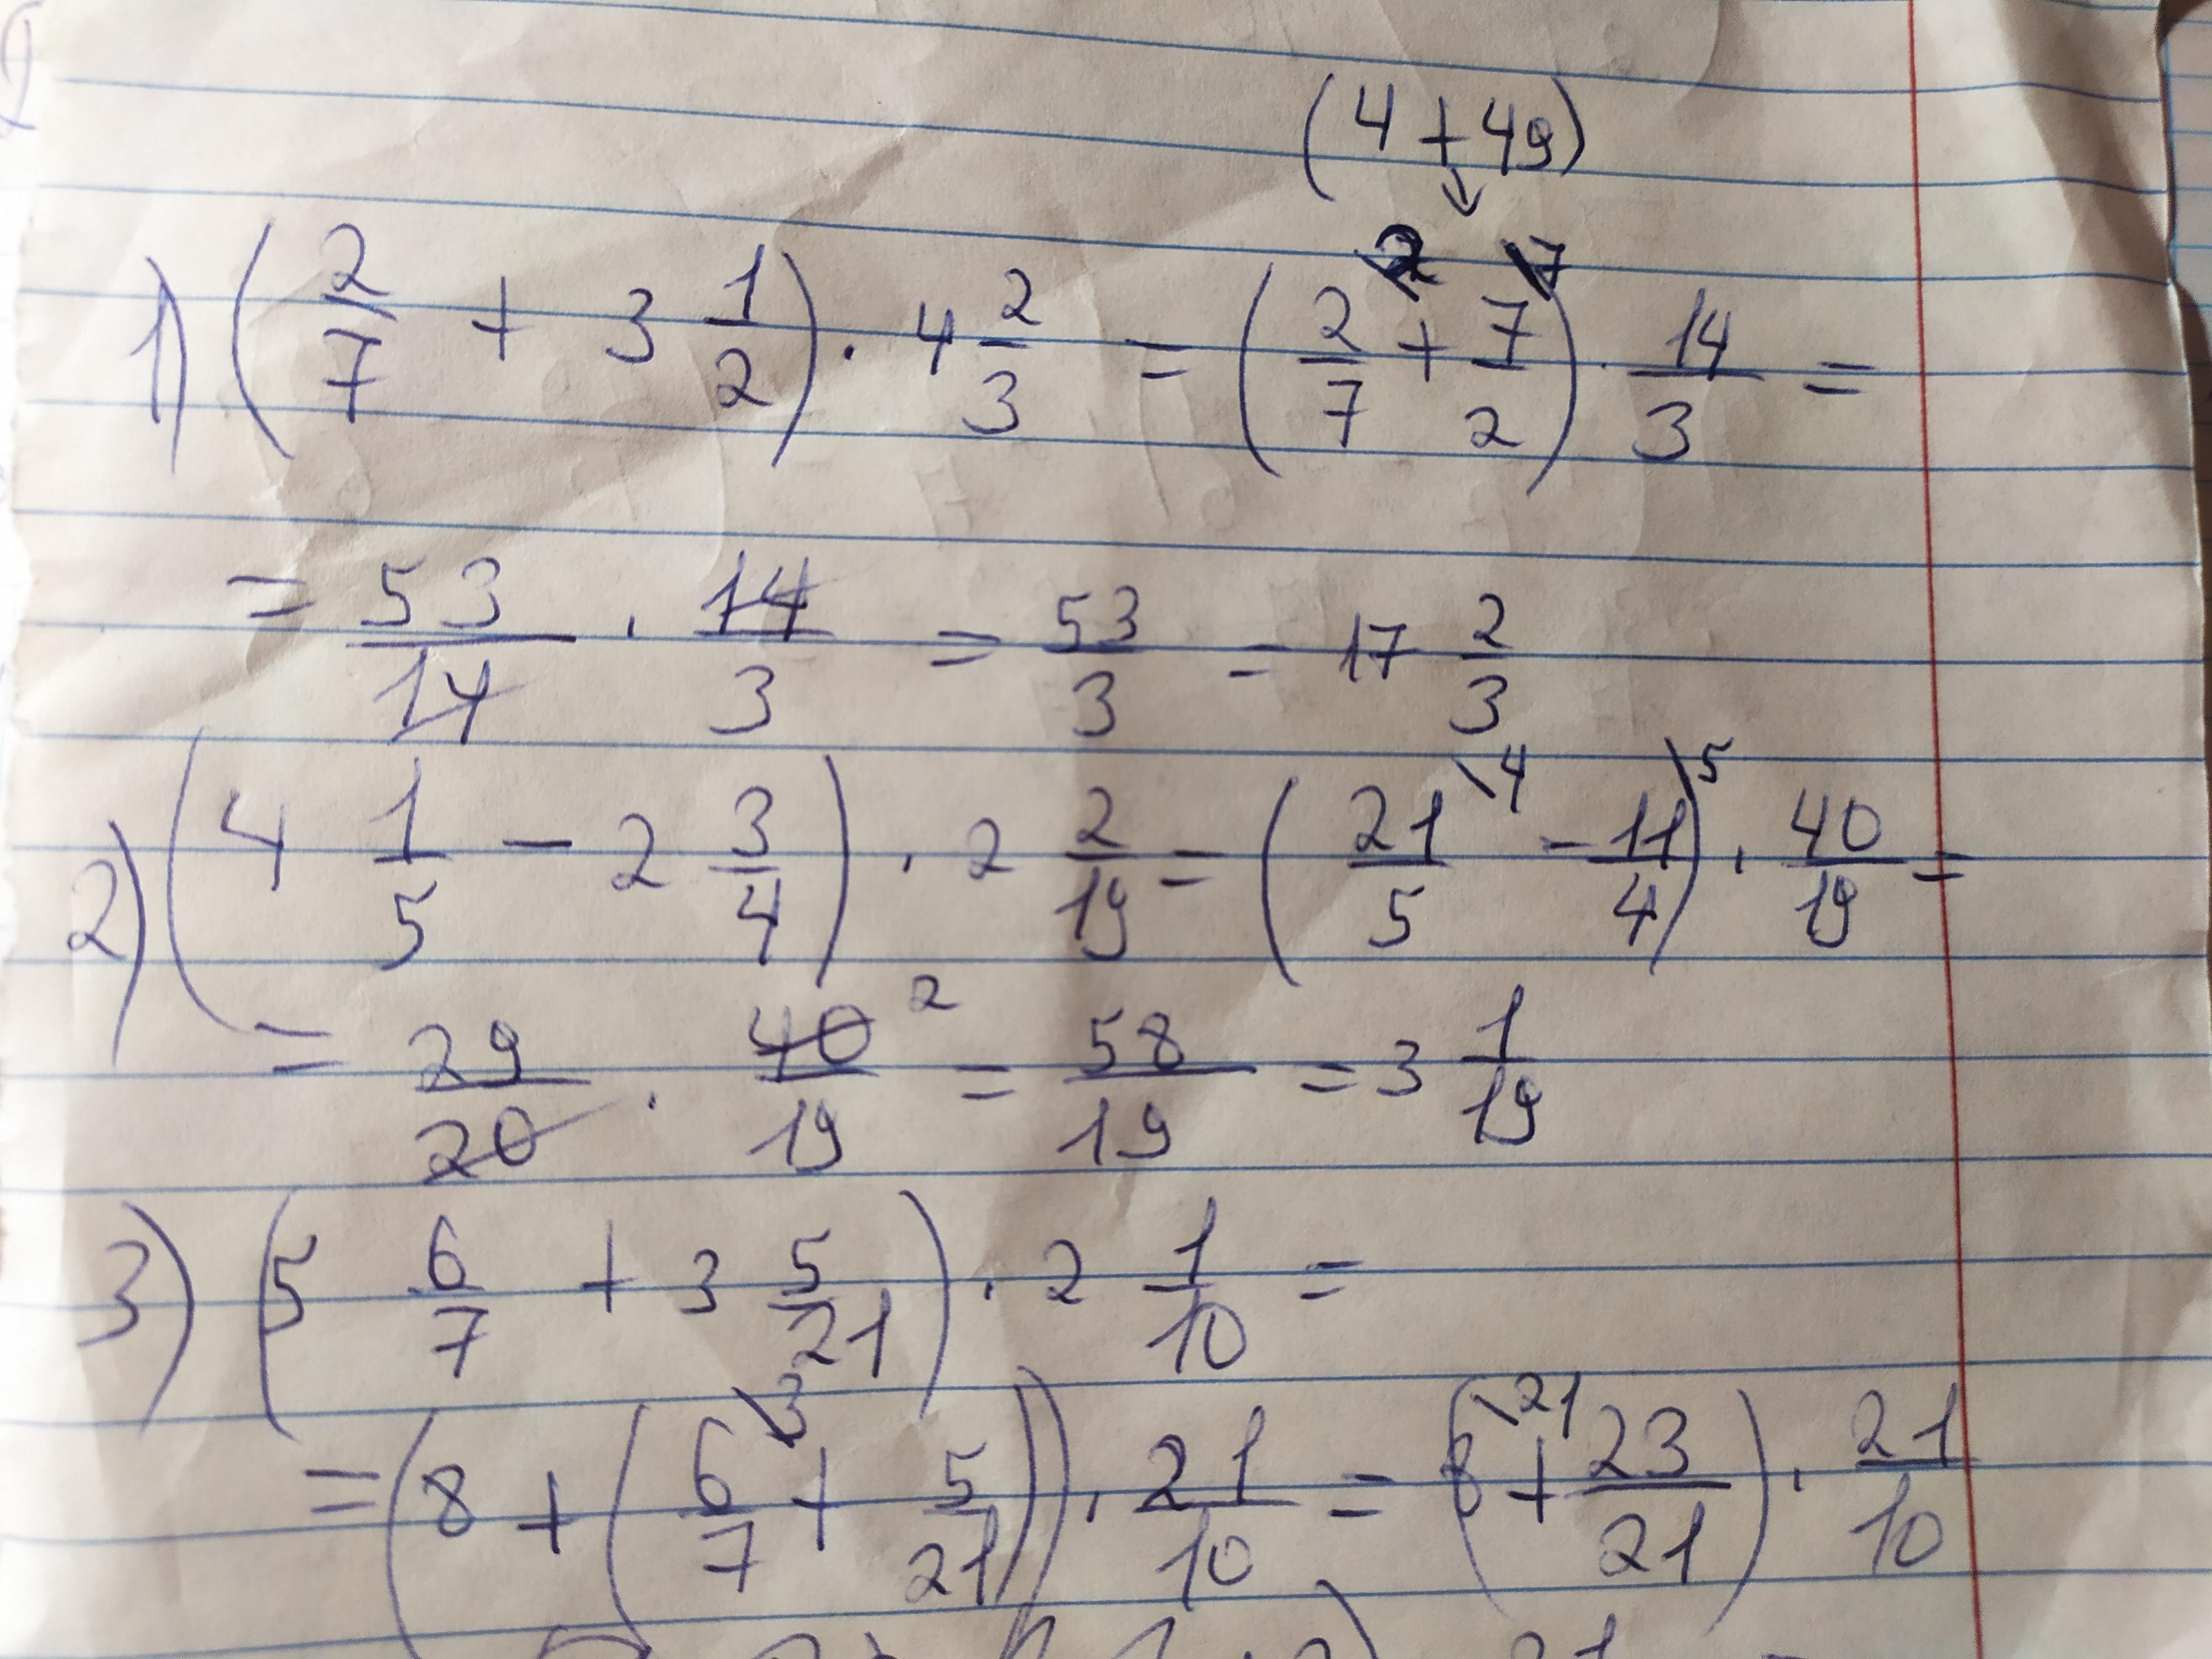 (4 + 49)
↓
1) (2/7 + 3 1/2) · 4 2/3 = (2/7 \2 + 7/2 \7) · 14/3 =
= 53/14 · 14/3 = 53/3 = 17 2/3
2) (4 1/5 - 2 3/4) · 2 2/19 = (21/5 \4 - 11/4 \5) · 40/19 =
= 29/20 · 40/19 2 = 58/19 = 3 1/19
3) (5 6/7 + 3 5/21) · 2 1/10 =
= (8 + (6/7 \3 + 5/21)) · 21/10 = (8 \21 + 23/21) · 21/10